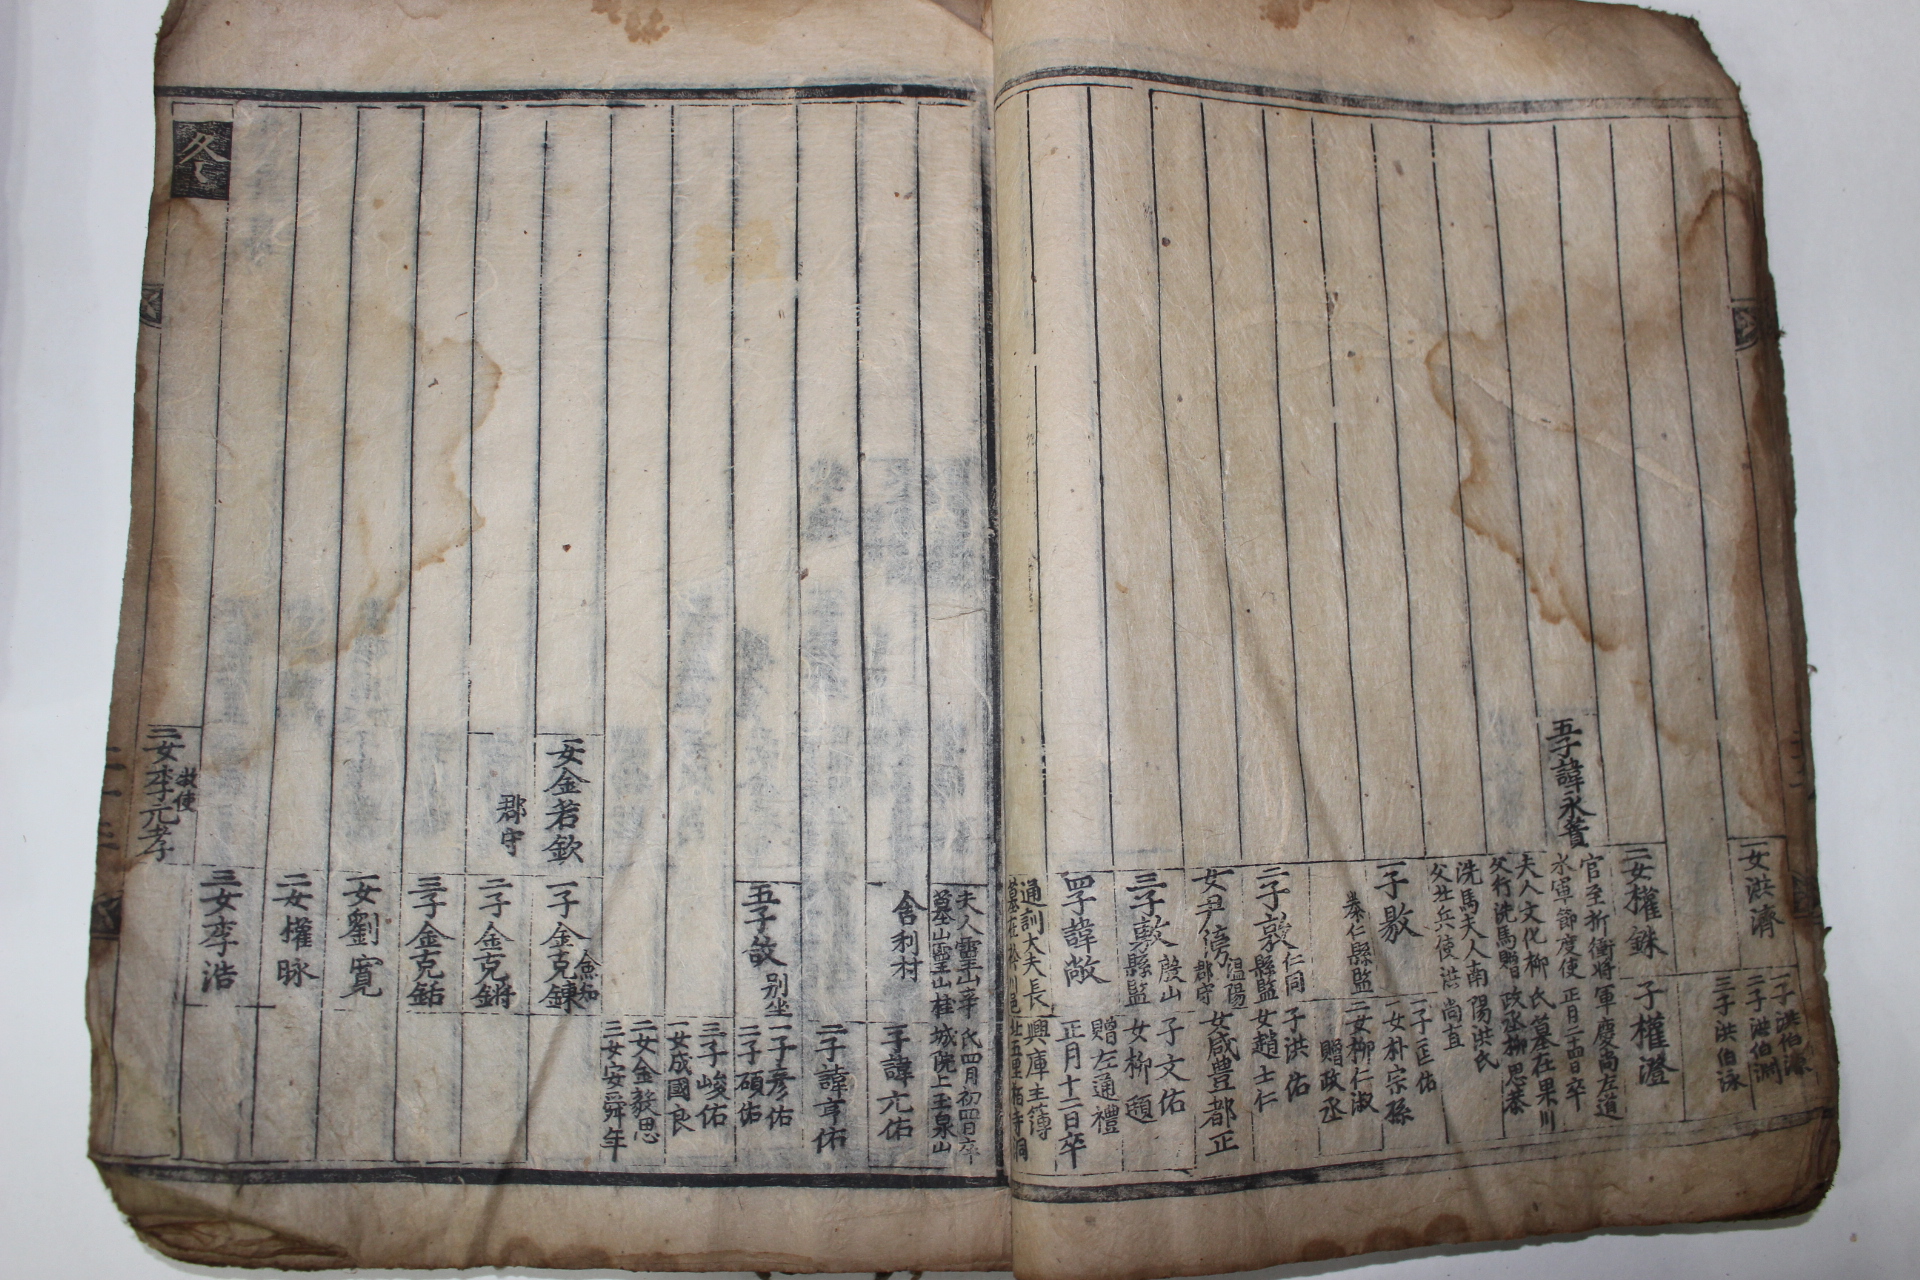 一女洪濟
一子洪伯濂
二子洪伯淵
三子洪伯泳
二女權銖
子權澄
五子諱永耆
官至折衝將軍慶尚左道
水軍節度使 正月二十四日卒
夫人文化柳氏墓在果川
父行洗馬贈政丞柳思恭
洗馬夫人南陽洪氏
父兵使洪尚直
一子敭
泰仁縣監
一子匡佑
一女朴宗孫
二女柳仁淑
贈政丞
二子敦
仁同
縣監
子洪佑
女趙士仁
女尹滂
溫陽
郡守
女咸豊都正
三子敷
殷山
縣監
子文佑
女柳䫆
四子諱敞
贈左通禮
正月十二日卒
通訓大夫長興庫主簿
夫人靈山辛氏四月初四日卒
墓山靈山桂城院上玉泉山
舍利村
子諱元佑
二子諱育佑
五子敆
別坐
一子彦佑
二子碩佑
三子峻佑
一女成國良
二女金毅思
三女安舜年
一女金若欽
郡守
一子金克鍊
僉知
二子金克鏘
三子金克銛
一女劉寬
二女權昹
三女李浩
二女李元孝
牧使
冬